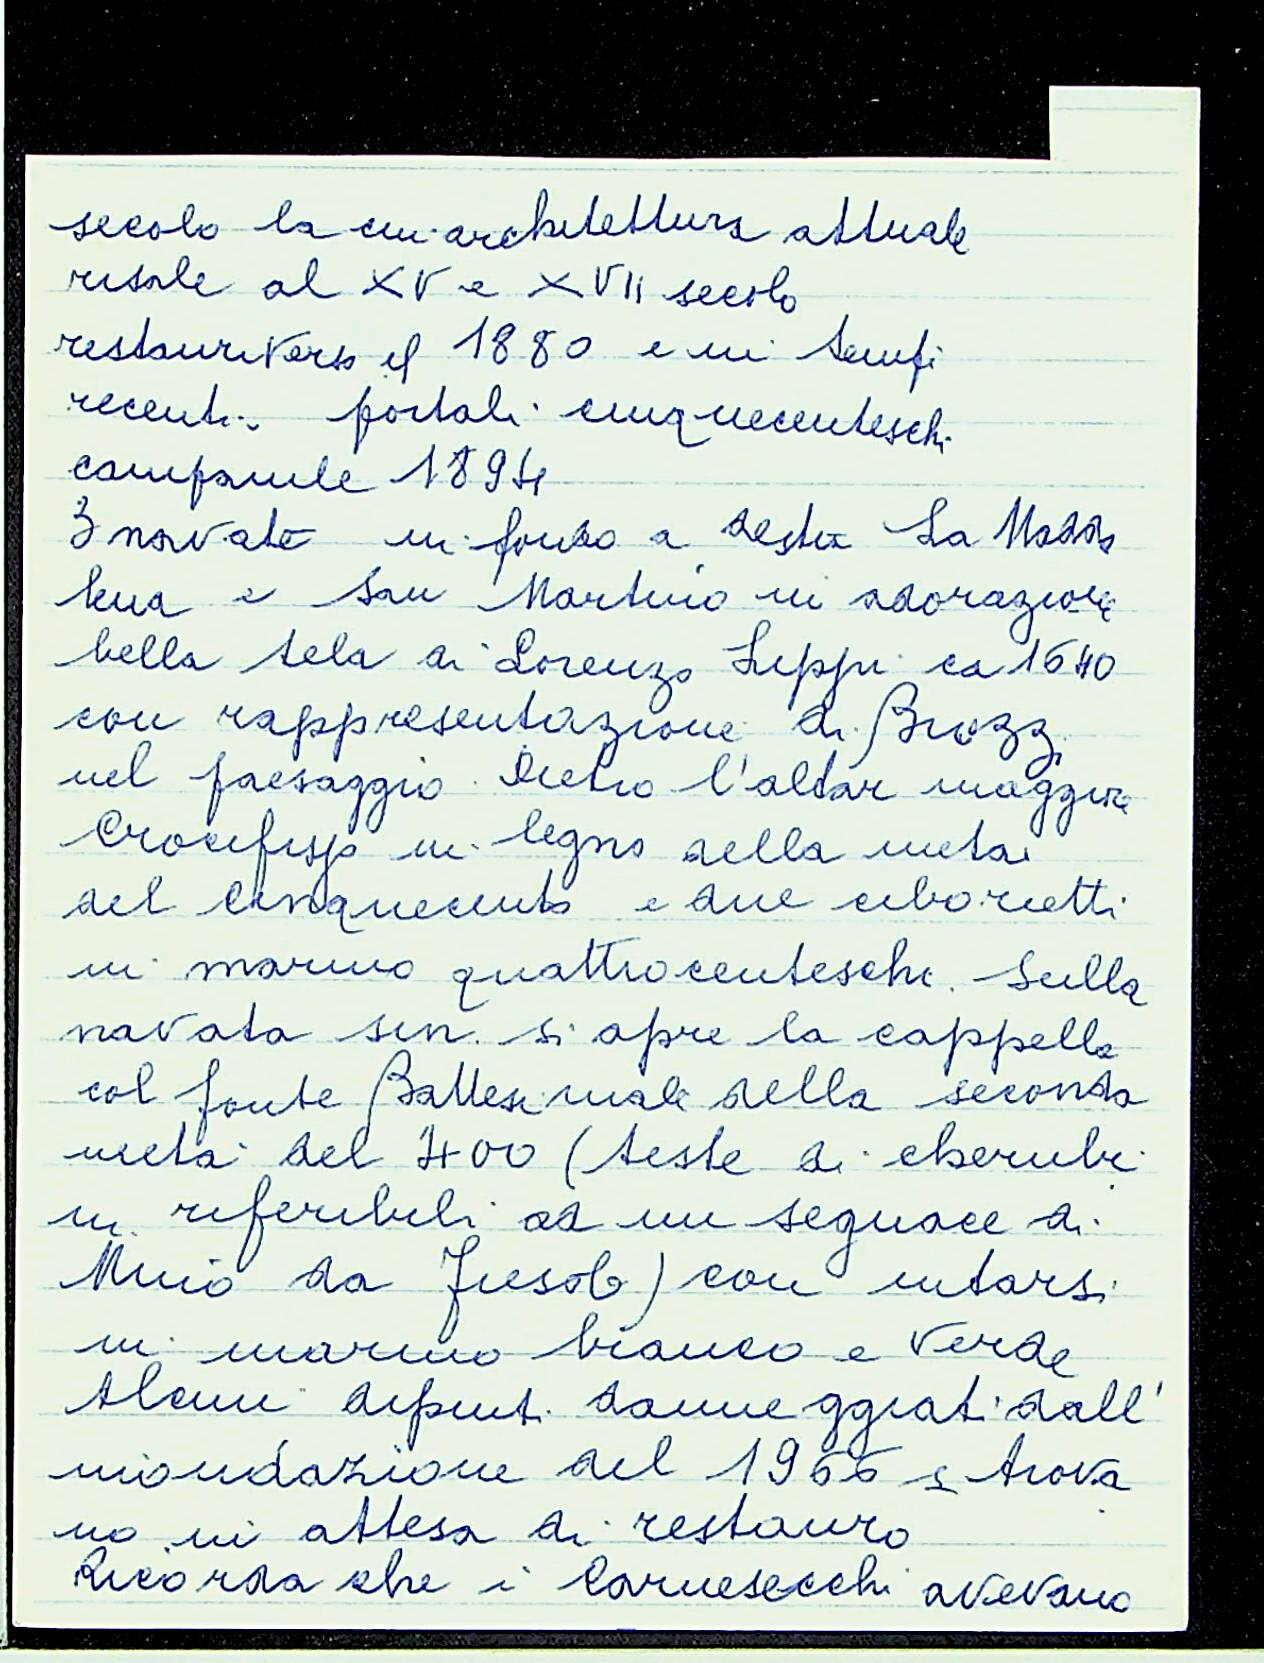 secolo la cui architettura attuale
risale al XV e XVII secolo
restauri verso il 1880 e in tempi
recenti. portali cinquecenteschi
campanile 1894
3 navate in fondo a destra La Madda
lena e San Martino in adorazione
bella tela di Lorenzo Lippi ca 1640
con rappresentazione di Brozzi
nel paesaggio. Dietro l'altar maggiore
Crocifisso in legno della metà
del Cinquecento e due ciborietti
in marmo quattrocenteschi. Sulla
navata sin. si apre la cappella
col fonte Battesimale della seconda
metà del 400 (teste di cherubi
ni riferibili ad un seguace di
Mino da Fiesole) con intarsi
in marmo bianco e verde
Alcuni dipinti danneggiati dall'
inondazione del 1966 si trova
no in attesa di restauro
Ricorda che i Carnesecchi avevano